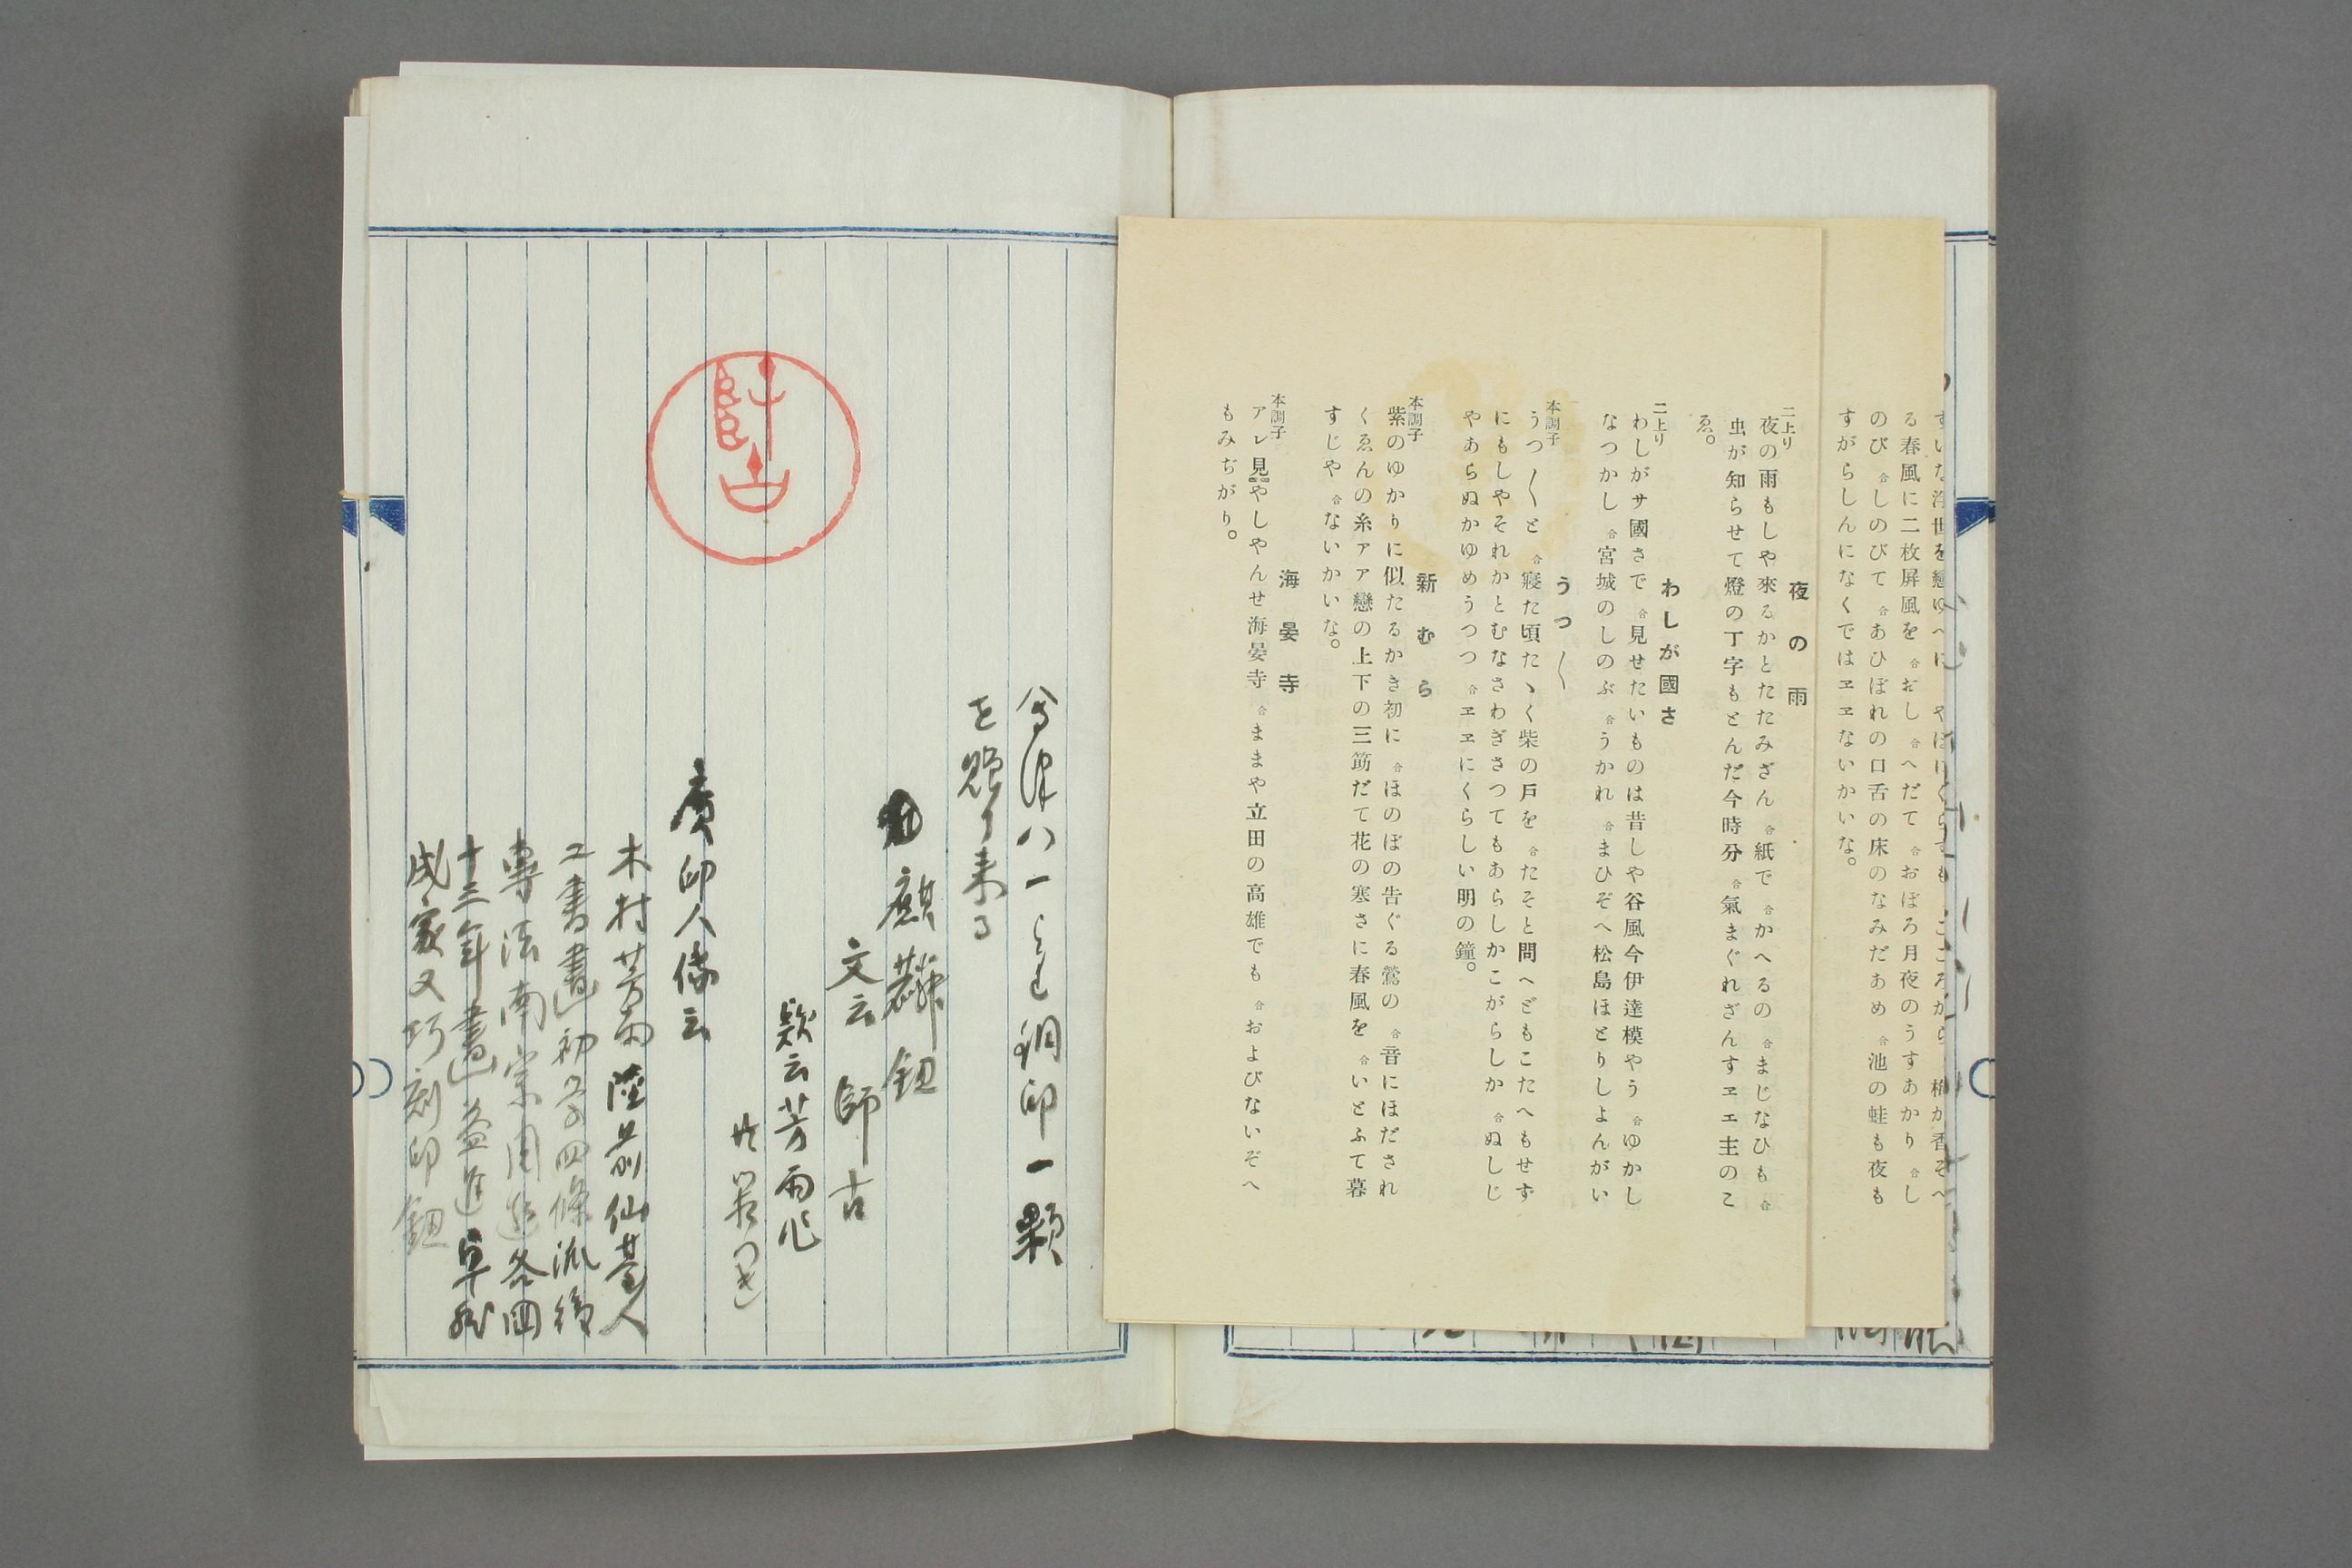 る春風に二枚屏風を 合 おし 合 へだて 合 おぼろ月夜のうすあかり 合 し
のび 合 しのびて 合 あひぼれの口舌の床のなみだあめ 合 池の蛙も夜も
すがらしんになくではヱヱないかいな。
夜の雨
二上り
夜の雨もしや來るかとたたみざん 合 紙で 合 かへるの 合 まじなひも 合
虫が知らせて燈の丁字もとんだ今時分 合 氣まぐれざんすヱエ主のこ
ゑ。
わしが國さ
二上り
わしがサ國さで 合 見せたいものは昔しや谷風今伊達模やう 合 ゆかし
なつかし 合 宮城のしのぶ 合 うかれ 合 まひぞへ松島ほとりしよんがい
うつ〱
本調子
うつ〱と 合 寢た頃たゝく柴の戸を 合 たそと問へどもこたへもせず
にもしやそれかとむなさわぎさつてもあらしかこがらしか 合 ぬしじ
やあらぬかゆめうつつ 合 ヱヱにくらしい明の鐘。
新むら
本調子
紫のゆかりに似たるかき初に 合 ほのぼの告ぐる鶯の 合 音にほだされ
くゑんの糸ァァ戀の上下の三筋だて花の寒さに春風を 合 いとふて暮
すじや 合 ないかいな。
海晏寺
本調子
アレ見やしやんせ海晏寺 合 ままや立田の高雄でも 合 およびないぞへ
もみぢがり。
會津八一より銅印一顆
を贈り来る
麒麟鈕
文云 師古
款云芳雨作
廣印人傳云
木村芳雨陸前仙臺人
工書畫初学四條派後
専法南宗周遊各国
十三年畫益進卓然
成家又巧刻印鈕